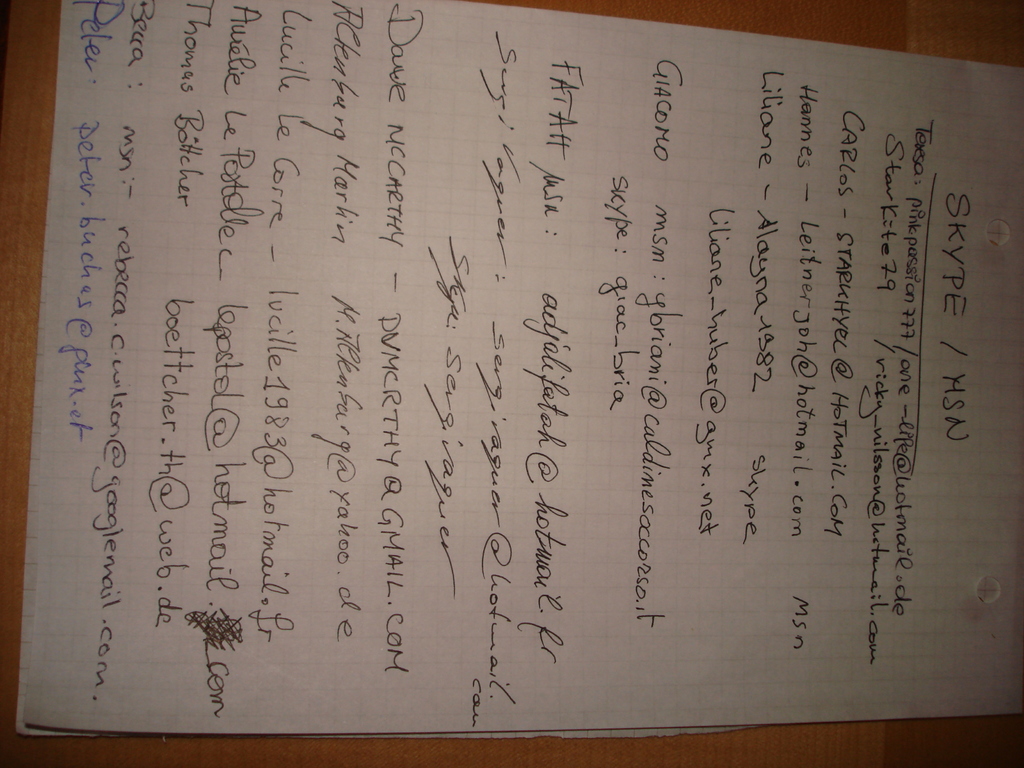 SKYPE / MSN
Tensa: pinkpassion777 / one-life@hotmail.de
Starkite79 / ricky_nilsson@hotmail.com
CARLOS - STARKHYEC@HOTMAIL.COM
Hannes - leitnerjoh@hotmail.com Msn
Liliane - Alayna1982 skype
liliane_huber@gmx.net
GIACOMO msn: gbriani@caldinesoccorso.it
skype: giac_bria
FATAH Msn: adjalifatah@hotmail.fr
Sergi Vaguer: sergivaguer@hotmail.com
Skype: sergivaguer
DAVE MCCARTHY - DVMCRTHY@GMAIL.COM
Altenburg Martin M.Altenburg@yahoo.de
Lucille Le Corre - lucille1983@hotmail.fr
Aurélie Le Postolec lepostol@hotmail.com
Thomas Böttcher boettcher.th@web.de
Becca: msn:- rebecca.c.wilson@googlemail.com.
Peter: peter.buchas@gmx.at